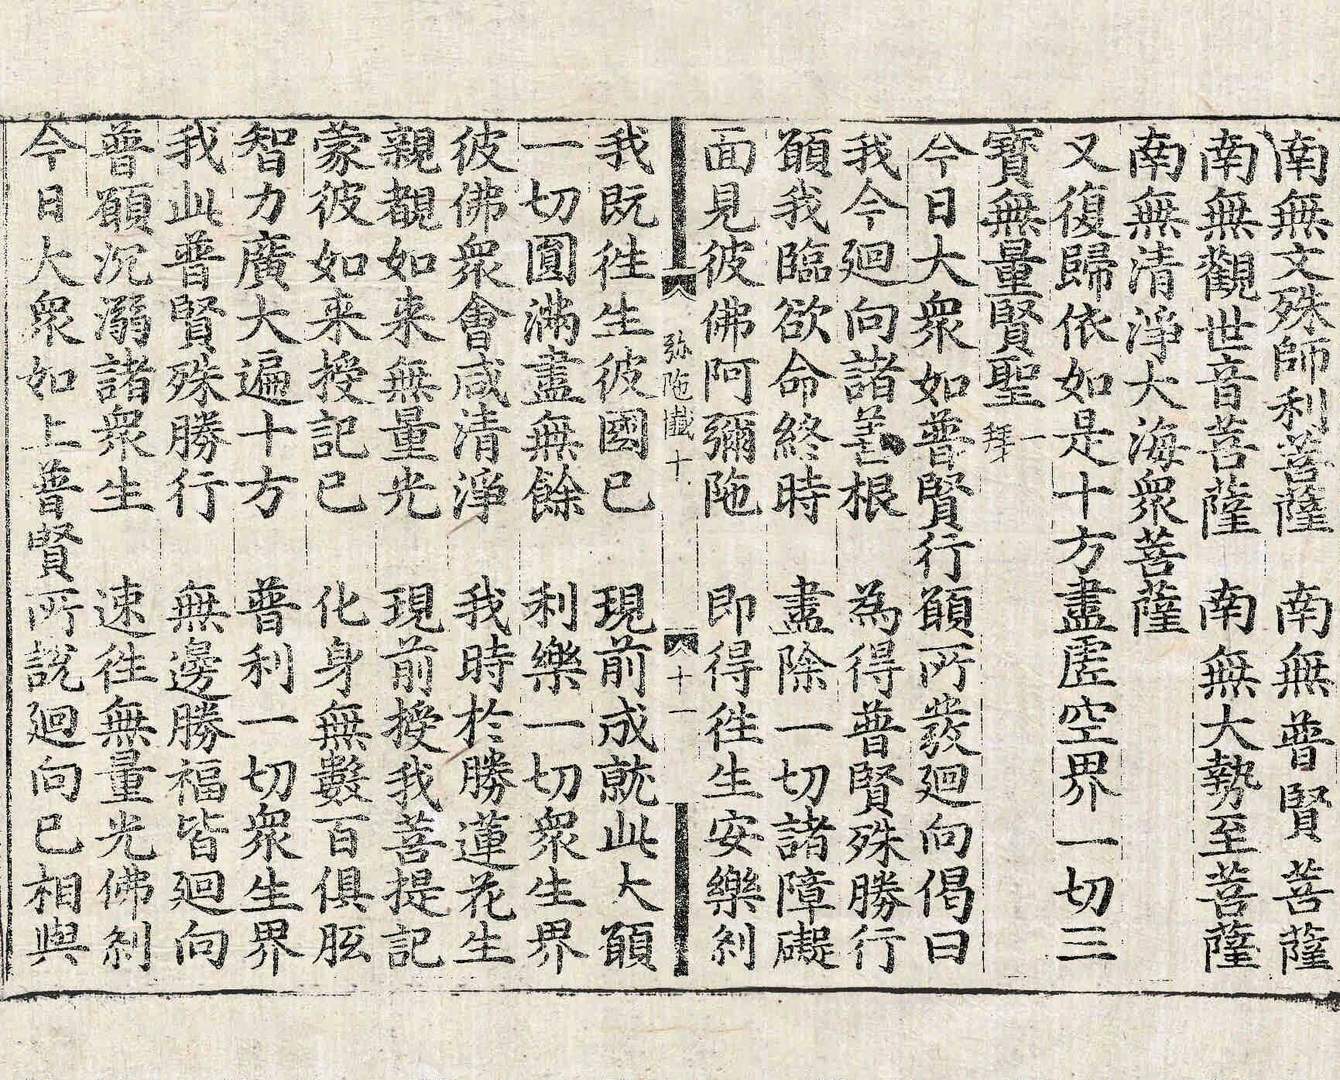 南無文殊師利菩薩　南無普賢菩薩
南無觀世音菩薩　南無大勢至菩薩
南無清淨大海衆菩薩
又復歸依如是十方盡虛空界一切三
寶無量賢聖 一拜
今日大衆如普賢行願所發廻向偈曰
我今廻向諸善根　為得普賢殊勝行
願我臨欲命終時　盡除一切諸障礙
面見彼佛阿彌陁　即得徃生安樂刹
弥陁懺十　十一
我既徃生彼國已　現前成就此大願
一切圓滿盡無餘　利樂一切衆生界
彼佛衆會咸清淨　我時於勝蓮花生
親覩如来無量光　現前授我菩提記
蒙彼如来授記已　化身無數百俱胝
智力廣大遍十方　普利一切衆生界
我此普賢殊勝行　無邊勝福皆廻向
普願沉溺諸衆生　速徃無量光佛刹
今日大衆如上普賢所說廻向已相與